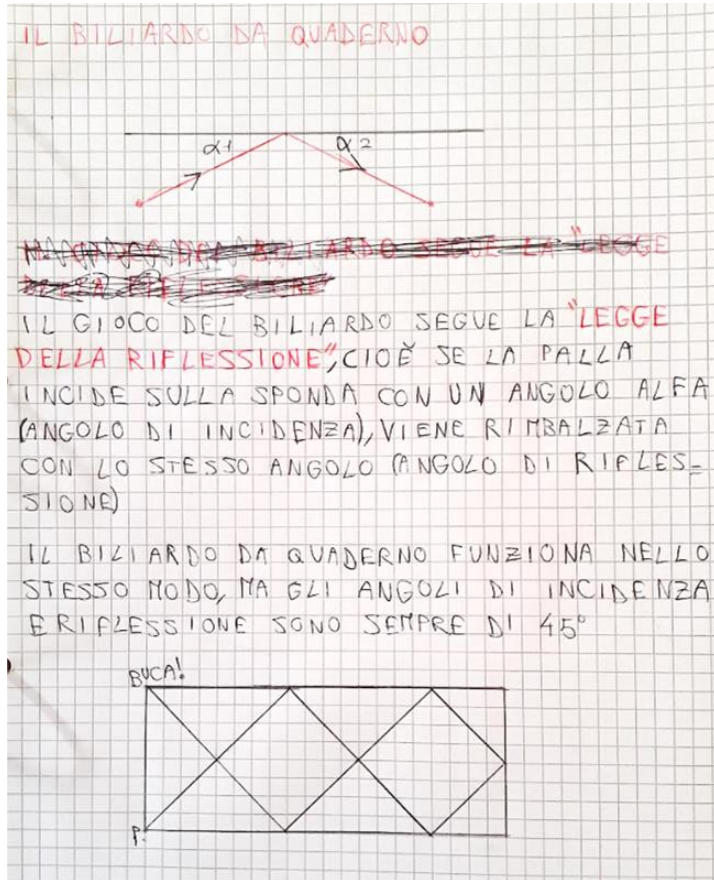 IL BILIARDO DA QUADERNO
α1 α2
IL GIOCO DEL BILIARDO SEGUE LA "LEGGE
DELLA RIFLESSIONE", CIOÈ SE LA PALLA
INCIDE SULLA SPONDA CON UN ANGOLO ALFA
(ANGOLO DI INCIDENZA), VIENE RIMBALZATA
CON LO STESSO ANGOLO (ANGOLO DI RIFLES-
SIONE)
IL BILIARDO DA QUADERNO FUNZIONA NELLO
STESSO MODO, MA GLI ANGOLI DI INCIDENZA
E RIFLESSIONE SONO SEMPRE DI 45°
BUCA!
P.